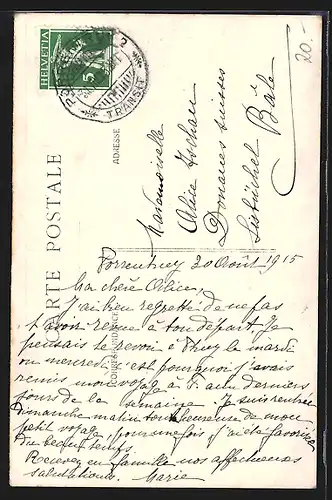 20.-
HELVETIA
5
TRANSIT
CARTE POSTALE
ADRESSE
CORRESPONDANCE
Mademoiselle
Alice Tschan
Douanes suisses
Lisbüchel Bâle
Porrentruy 20 Août 1915
Ma chère Alice,
J'ai bien regretté de ne pas
t'avoir revue à ton départ. Je
pensais te revoir à Bruy le mardi
ou mercredi, c'est pourquoi j'avais
remis mon voyage à l'un derniers
jours de la semaine. Je suis rentrée
Dimanche matin toute heureuse de mon
petit voyage, pour une fois j'ai été favorisée
du beau temps.
Recevez en famille nos affectueuses
salutations. Marie